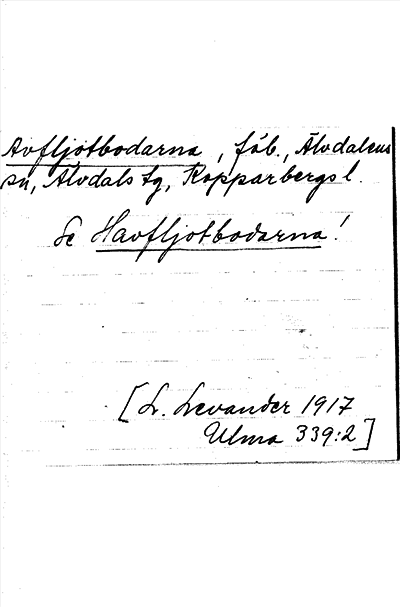 Avfljotbodarna, fäb., Älvdalens
sn, Älvdals tg, Kopparbergs l.
Se Havfljotbodarna!
[L. Levander 1917
Ulma 339:2]